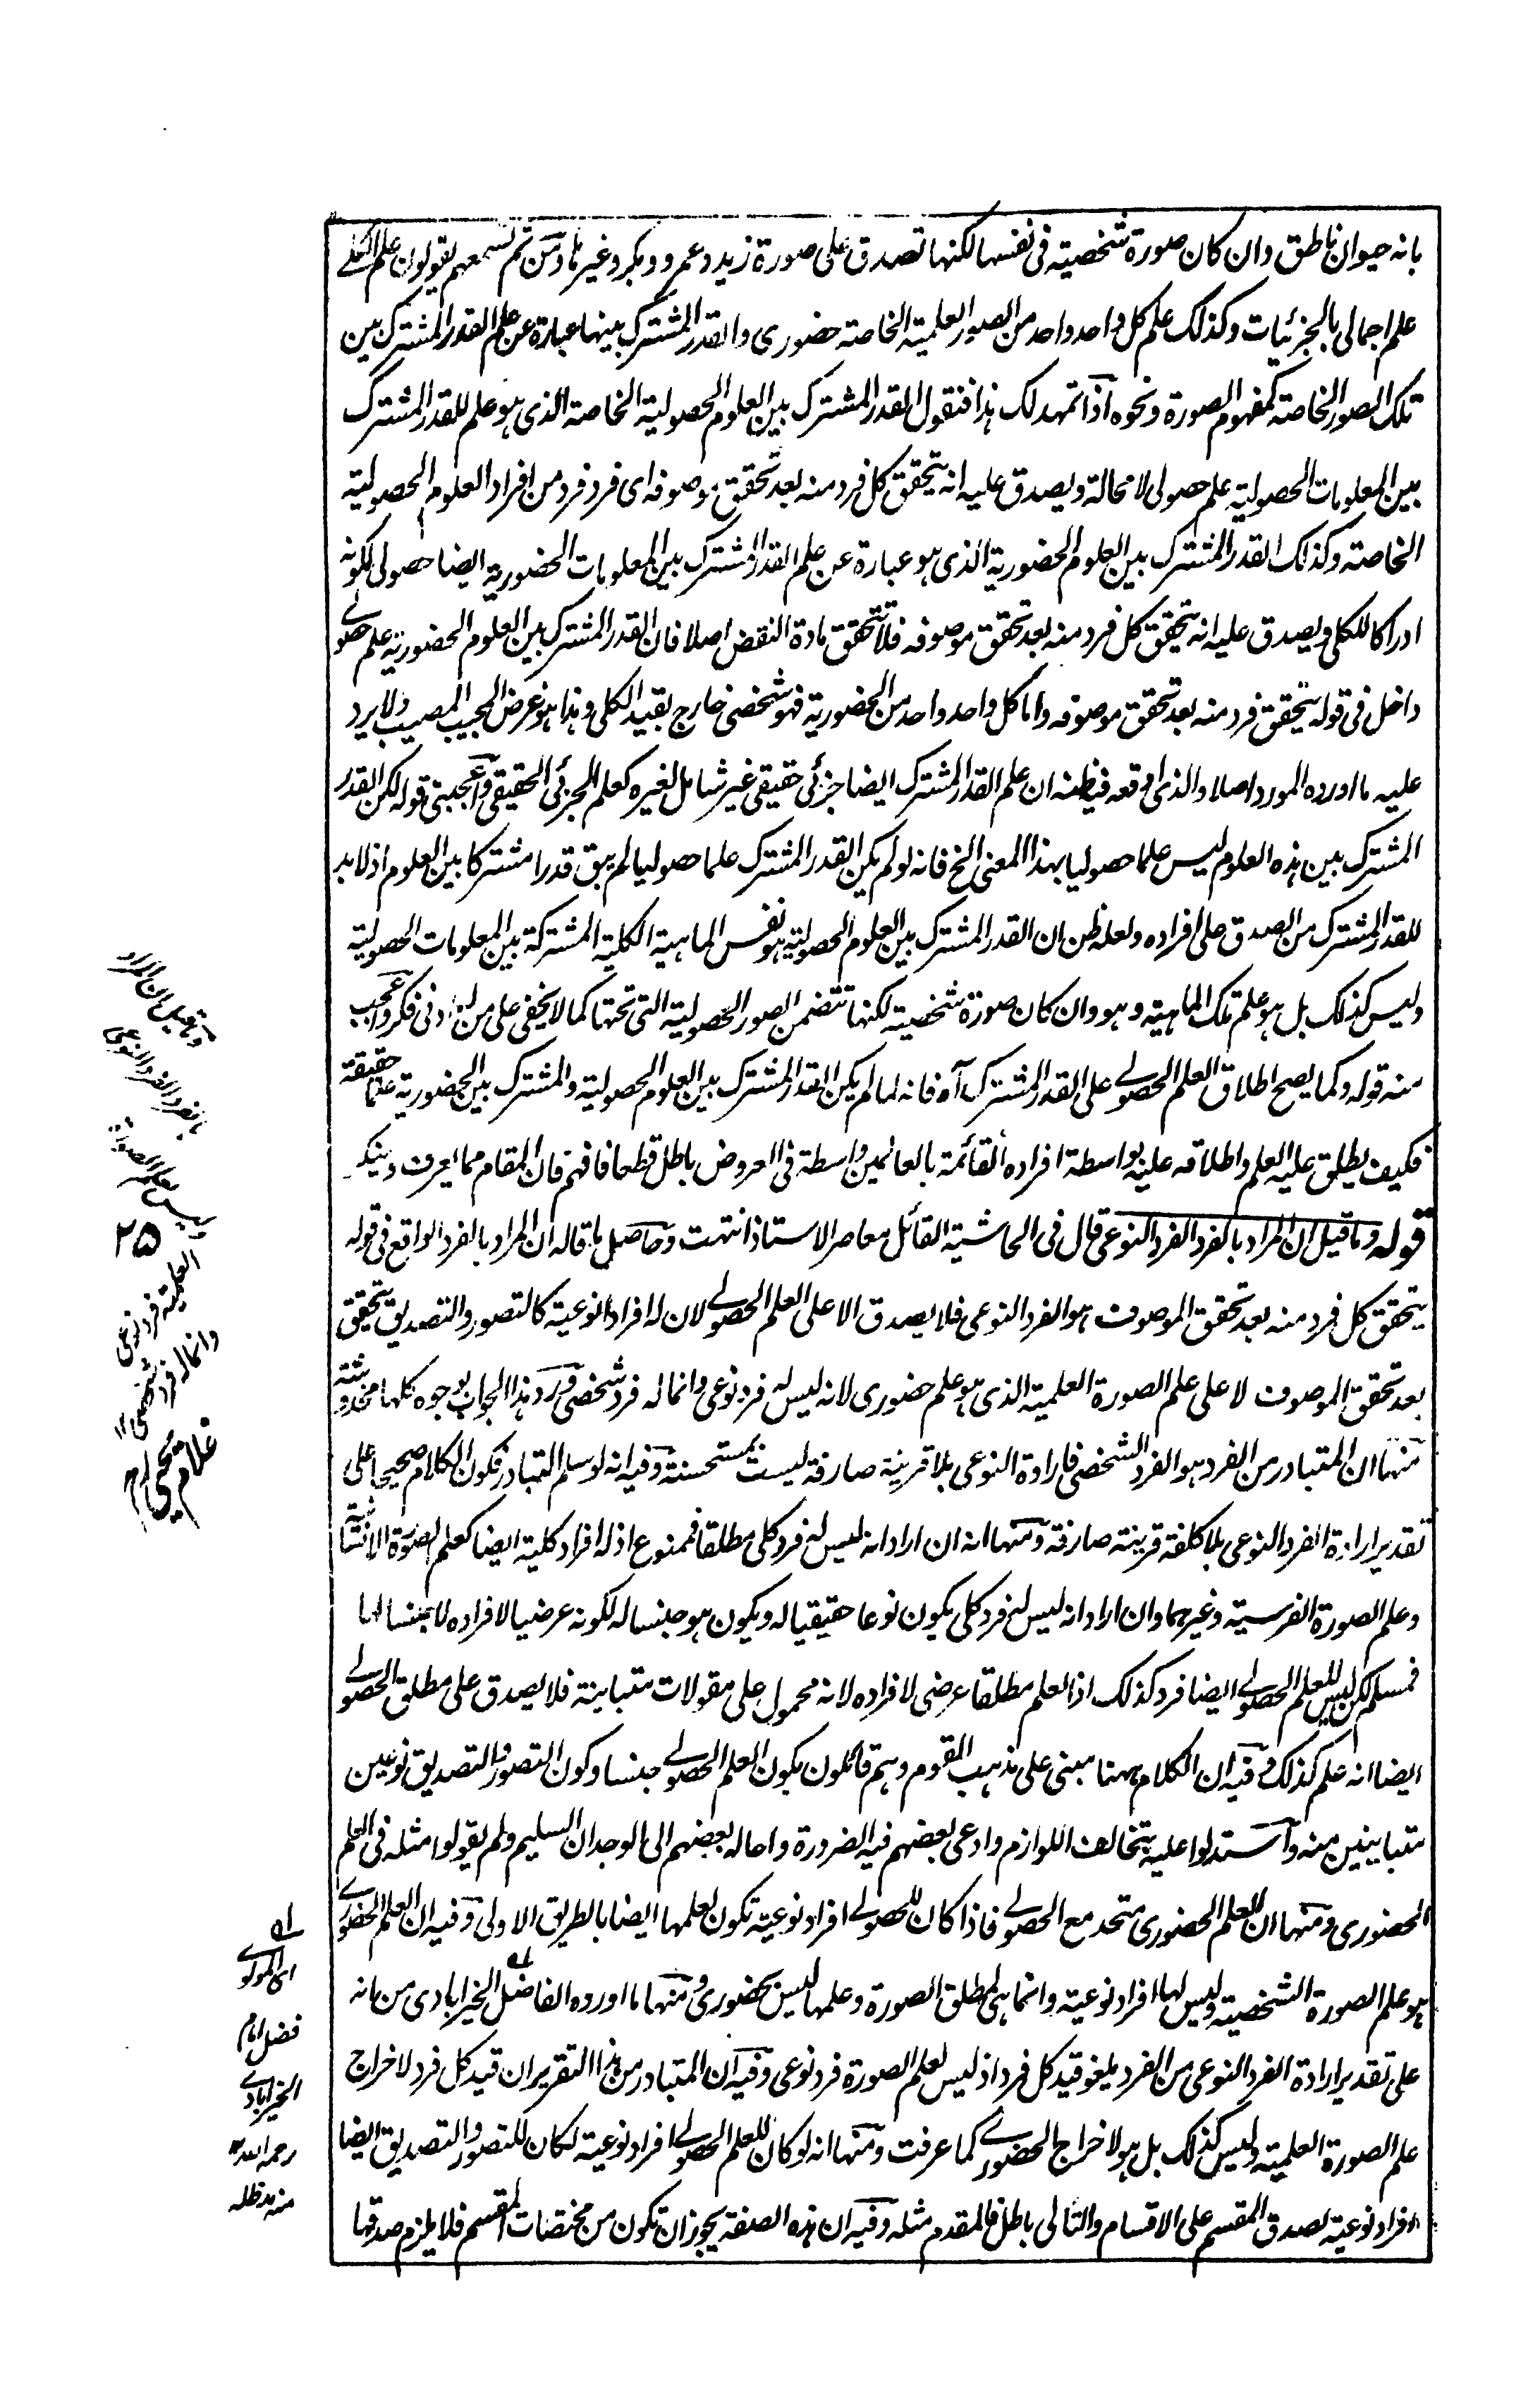 بانه حيوان ناطق وان كان صورة شخصية فى نفسها لكنها تصدق على صورة زيد وعمرو وبكر وغيرها ومن ثم تسمعهم يقولون علم الكلے
علم اجمالى بالجزئيات وكذلك علم كل واحد واحد من الصور العلمية الخاصة حضورى والقدر المشترك بينها عبارة عن علم القدر المشترك بين
تلك الصور الخاصة كمفهوم الصورة ونحوه اذا تمهد لك هذا فنقول القدر المشترك بين العلوم الحصولية الخاصة الذى هو علم للقدر المشترك
بين المعلومات الحصولية علم حصولى لا محالة ويصدق عليه انه يتحقق كل فرد منه بعد تحقق موصوفه اى فرد فرد من افراد العلوم الحصولية
الخاصة وكذلك القدر المشترك بين العلوم الحضورية الذى هو عبارة عن علم القدر المشترك بين المعلومات الحضورية ايضا حصولى لكونه
ادراكا للكلى ويصدق عليه انه يتحقق كل فرد منه بعد تحقق موصوفه فلا تتحقق مادة النقض اصلا فان القدر المشترك بين العلوم الحضورية علم حصولے
داخل فى قوله يتحقق فرد منه بعد تحقق موصوفه واما كل واحد واحد من الحضورية فهو شخصى خارج بقيد الكلى وهذا هو غرض المجيب المصيب ولا يرد
عليه ما اورده المورد اصلا والذى اوقعه فيه ظنه ان علم القدر المشترك ايضا جزئى حقيقى غير شامل لغيره كعلم الجزئى الحقيقى واعجبنى قوله لكن القدر
المشترك بين هذه العلوم ليس علما حصوليا بهذا المعنى الخ فانه لو لم يكن القدر المشترك علما حصوليا لم يبق قدرا مشتركا بين العلوم اذ لا بد
للقدر المشترك من الصدق على افراده ولعله ظن ان القدر المشترك بين العلوم الحصولية هو نفس الماهية الكلية المشتركة بين المعلومات الحصولية
وليس كذلك بل هو علم تلك الماهية وهو وان كان صورة شخصية لكنها تتضمن الصور الحصولية التى تحتها كما لا يخفى على من له ادنى فكر واعجب
منه قوله وكما يصح اطلاق العلم الحصولے على القدر المشترك آه فانه لما لم يكن القدر المشترك بين العلوم الحصولية والمشترك بين الحضورية علما حقيقة
فكيف يطلق عليه العلم واطلاقه عليه بواسطة افراده القائمة بالعالمين واسطة فى العروض باطل قطعا فافهم فان المقام مما يعرف وينكر
قوله وما قيل ان المراد بالفرد الفرد النوعى قال فى الحاشية القائل معاصر الاستاذ انتهت وحاصل ما قاله ان المراد بالفرد الواقع فى قوله
يتحقق كل فرد منه بعد تحقق الموصوف هو الفرد النوعى فلا يصدق الا على العلم الحصولے لان له افرادا نوعية كالتصور والتصديق يتحقق
بعد تحقق الموصوف لا على علم الصورة العلمية الذى هو علم حضورى لانه ليس له فرد نوعى وانما له فرد شخصى ويرد هذا الجواب بوجوه كلها مخدوشة
منها ان المتبادر من الفرد هو الفرد الشخصى فارادة النوعى بلا قرينة صارفة ليست بمستحسنة وفيه انه لو سلم التبادر فكون الكلام صحيحا على
تقدير ارادة الفرد النوعى بلا كلفة قرينة صارفة ومنها انه ان اراد انه ليس له فرد كلى مطلقا فممنوع اذ له افراد كلية ايضا كعلم الصورة الانسانية
وعلم الصورة الفرسية وغيرهما وان اراد انه ليس له فرد كلى يكون نوعا حقيقيا له ويكون هو جنسا له لكونه عرضيا لافراده لا جنسا لها
فمسلم لكن ليس للعلم الحصولے ايضا فرد كذلك اذ العلم مطلقا عرضى لافراده لانه محمول على مقولات متباينة فلا يصدق على مطلق الحصولے
ايضا انه علم كذلك وفيه ان الكلام ههنا مبنى على مذهب القوم وهم قائلون بكون العلم الحصولے جنسا وكون التصور والتصديق نوعين
متباينين منه واستدلوا عليه بتخالف اللوازم وادعى بعضهم فيه الضرورة واحاله بعضهم الى الوجدان السليم ولم يقولوا مثله فى العلم
الحضورى ومنها ان العلم الحضورى متحد مع الحصولے فاذا كان للحصولے افراد نوعية تكون لعلمها ايضا بالطريق الاولى وفيه ان العلم الحضورے
هو علم الصورة الشخصية وليس لها افراد نوعية وانما هى لمطلق الصورة وعلمها ليس بحضورى ومنها ما اورده الفاضل الخيرابادى من انه
على تقدير ارادة الفرد النوعى من الفرد يلغو قيد كل فرد اذ ليس لعلم الصورة فرد نوعى وفيه ان المتبادر من هذا التقرير ان قيد كل فرد لاخراج
علم الصورة العلمية وليس كذلك بل هو لاخراج الحضورے كما عرفت ومنها انه لو كان للعلم الحصولے افراد نوعية لكان للتصور والتصديق ايضا
افراد نوعية لصدق المقسم على الاقسام والتالى باطل فالمقدم مثله وفيه ان هذه الصفة يجوز ان تكون من مختصات المقسم فلا يلزم صدقها
وما قيل ان المراد
بالفرد الفرد النوعى
وليس لعلم الصورة
٢٥
العلمية فرد نوعى
وانما له فرد شخصى ١٢
غلام يحيى
له
اى المولوے
فضل امام
الخيرابادے
رحمه الله ١٢
منه مدظله